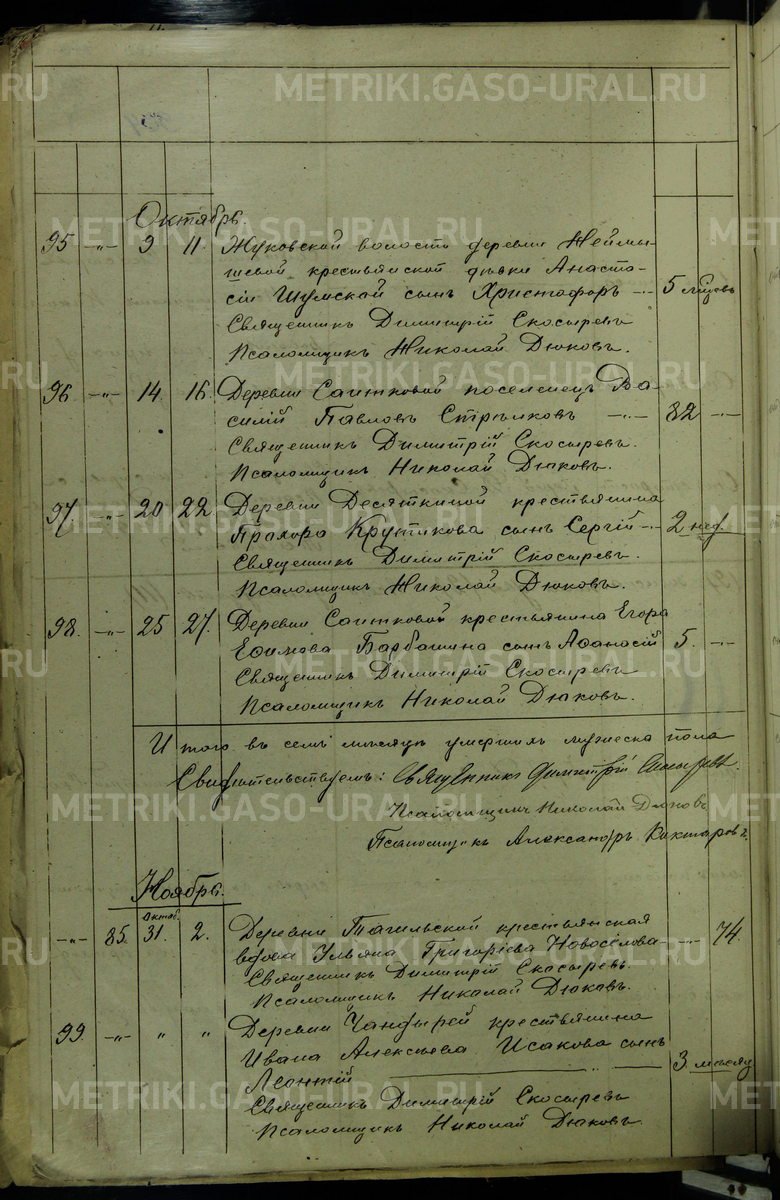 Октябрь.
95 -„- 9 11. Жуковской волости деревни Жеймы-
шевой крестьянской дѣвки Анаста-
сіи Шумской сынъ Христофоръ -- 5 мѣсяцъ
Священникъ Димитрій Скосыревъ
Псаломщикъ Николай Дюковъ.
96. -„- 14. 16. Деревни Саитковой поселенецъ Ва-
силій Павловъ Стрѣлковъ -„- 82 -„-
Священникъ Димитрій Скосыревъ.
Псаломщикъ Николай Дюковъ.
97. -„- 20 22. Деревни Десяткиной крестьянина
Прохора Крутикова сынъ Сергій -- 2 нед.
Священникъ Димитрій Скосыревъ.
Псаломщикъ Николай Дюковъ.
98. -„- 25 27. Деревни Саитковой крестьянина Егора
Ефимова Барбашина сынъ Аѳанасій 5. -„-
Священникъ Димитрій Скосыревъ
Псаломщикъ Николай Дюковъ.
Итого въ семъ мѣсяцѣ умершихъ мужеска пола
Свидѣтельствуемъ: Священникъ Димитрій Скосыревъ.
Псаломщикъ Николай Дюковъ
Псаломщикъ Александръ
Ноябрь.
Октяб.
-„- 85. 31. 2. Деревни Тагильской крестьянская
вдова Ульяна Григорьева Новосёлова -„- 74.
Священникъ Димитрій Скосыревъ.
Псаломщикъ Николай Дюковъ.
99. -„- „ „ Деревни Чандырей крестьянина
Ивана Алексѣева Исакова сынъ
Леонтій 3. мѣсяц
Священникъ Димитрій Скосыревъ
Псаломщикъ Николай Дюковъ.
METRIKI.GASO-URAL.RU